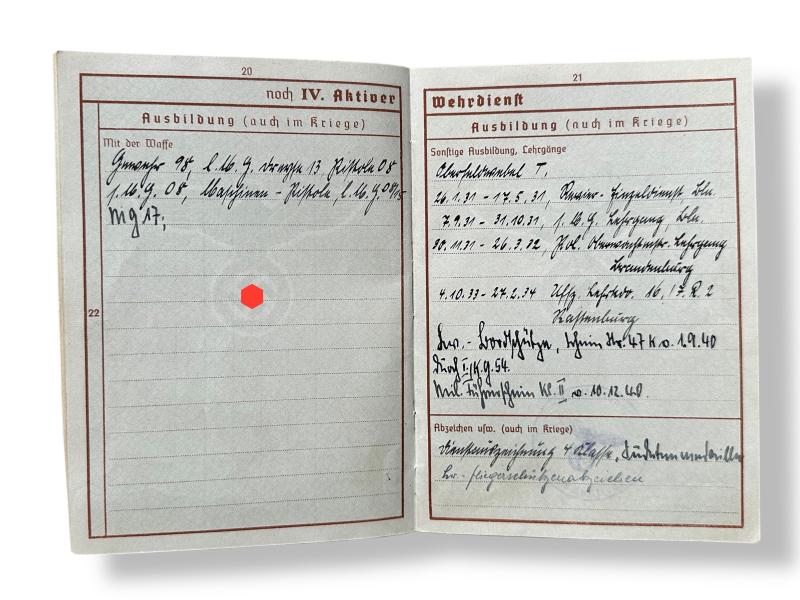 20
noch IV. Aktiver
Ausbildung (auch im Kriege)
Mit der Waffe
Gewehr 98, l. M. G. Dreyse 13 Pistole 08
s. M. G. 08, Maschinen-Pistole, l. M. G 08/15
MG 17,
22
21
Wehrdienst
Ausbildung (auch im Kriege)
Sonstige Ausbildung, Lehrgänge
Oberfeldwebel T.
26.1.31 - 17.5.31, Revier-Einzeldienst, Bln.
7.9.31 - 31.10.31, s. M. G. Lehrgang, Bln.
30.11.31 - 26.3.32, Pol. Oberwachtmstr. Lehrgang
Brandenburg
4.10.33 - 27.2.34 Uffz. Lehrkdo. 16, I. R. 2
Rastenburg
Lw.-Bordschütze, Schein Nr. 47 K v. 1.9.40
durch I./K.G. 54.
Mil. Führerschein Kl. II v. 10.12.40.
Abzeichen usw. (auch im Kriege)
Dienstauszeichnung 4 Klasse, Sudetenmedaille
Lw.-Fliegerschützenabzeichen